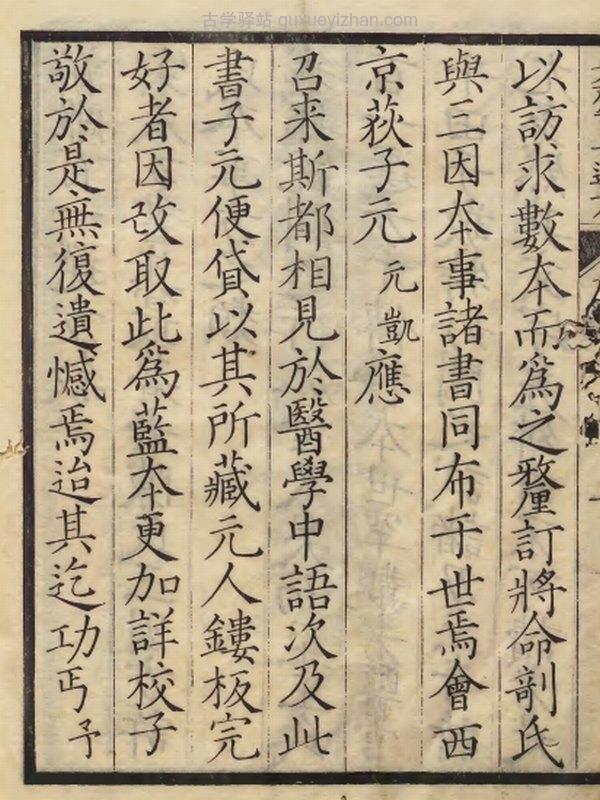 古学驿站 quxueyizhan.com
以訪求數本而爲之釐訂將命剞氏
與三因本事諸書同布于世焉會西
京荻子元元凱應
召来斯都相見於醫學中語次及此
書子元便貸以其所藏元人鏤板完
好者因改取此爲藍本更加詳校子
敬於是無復遺憾焉迨其迄功丐予